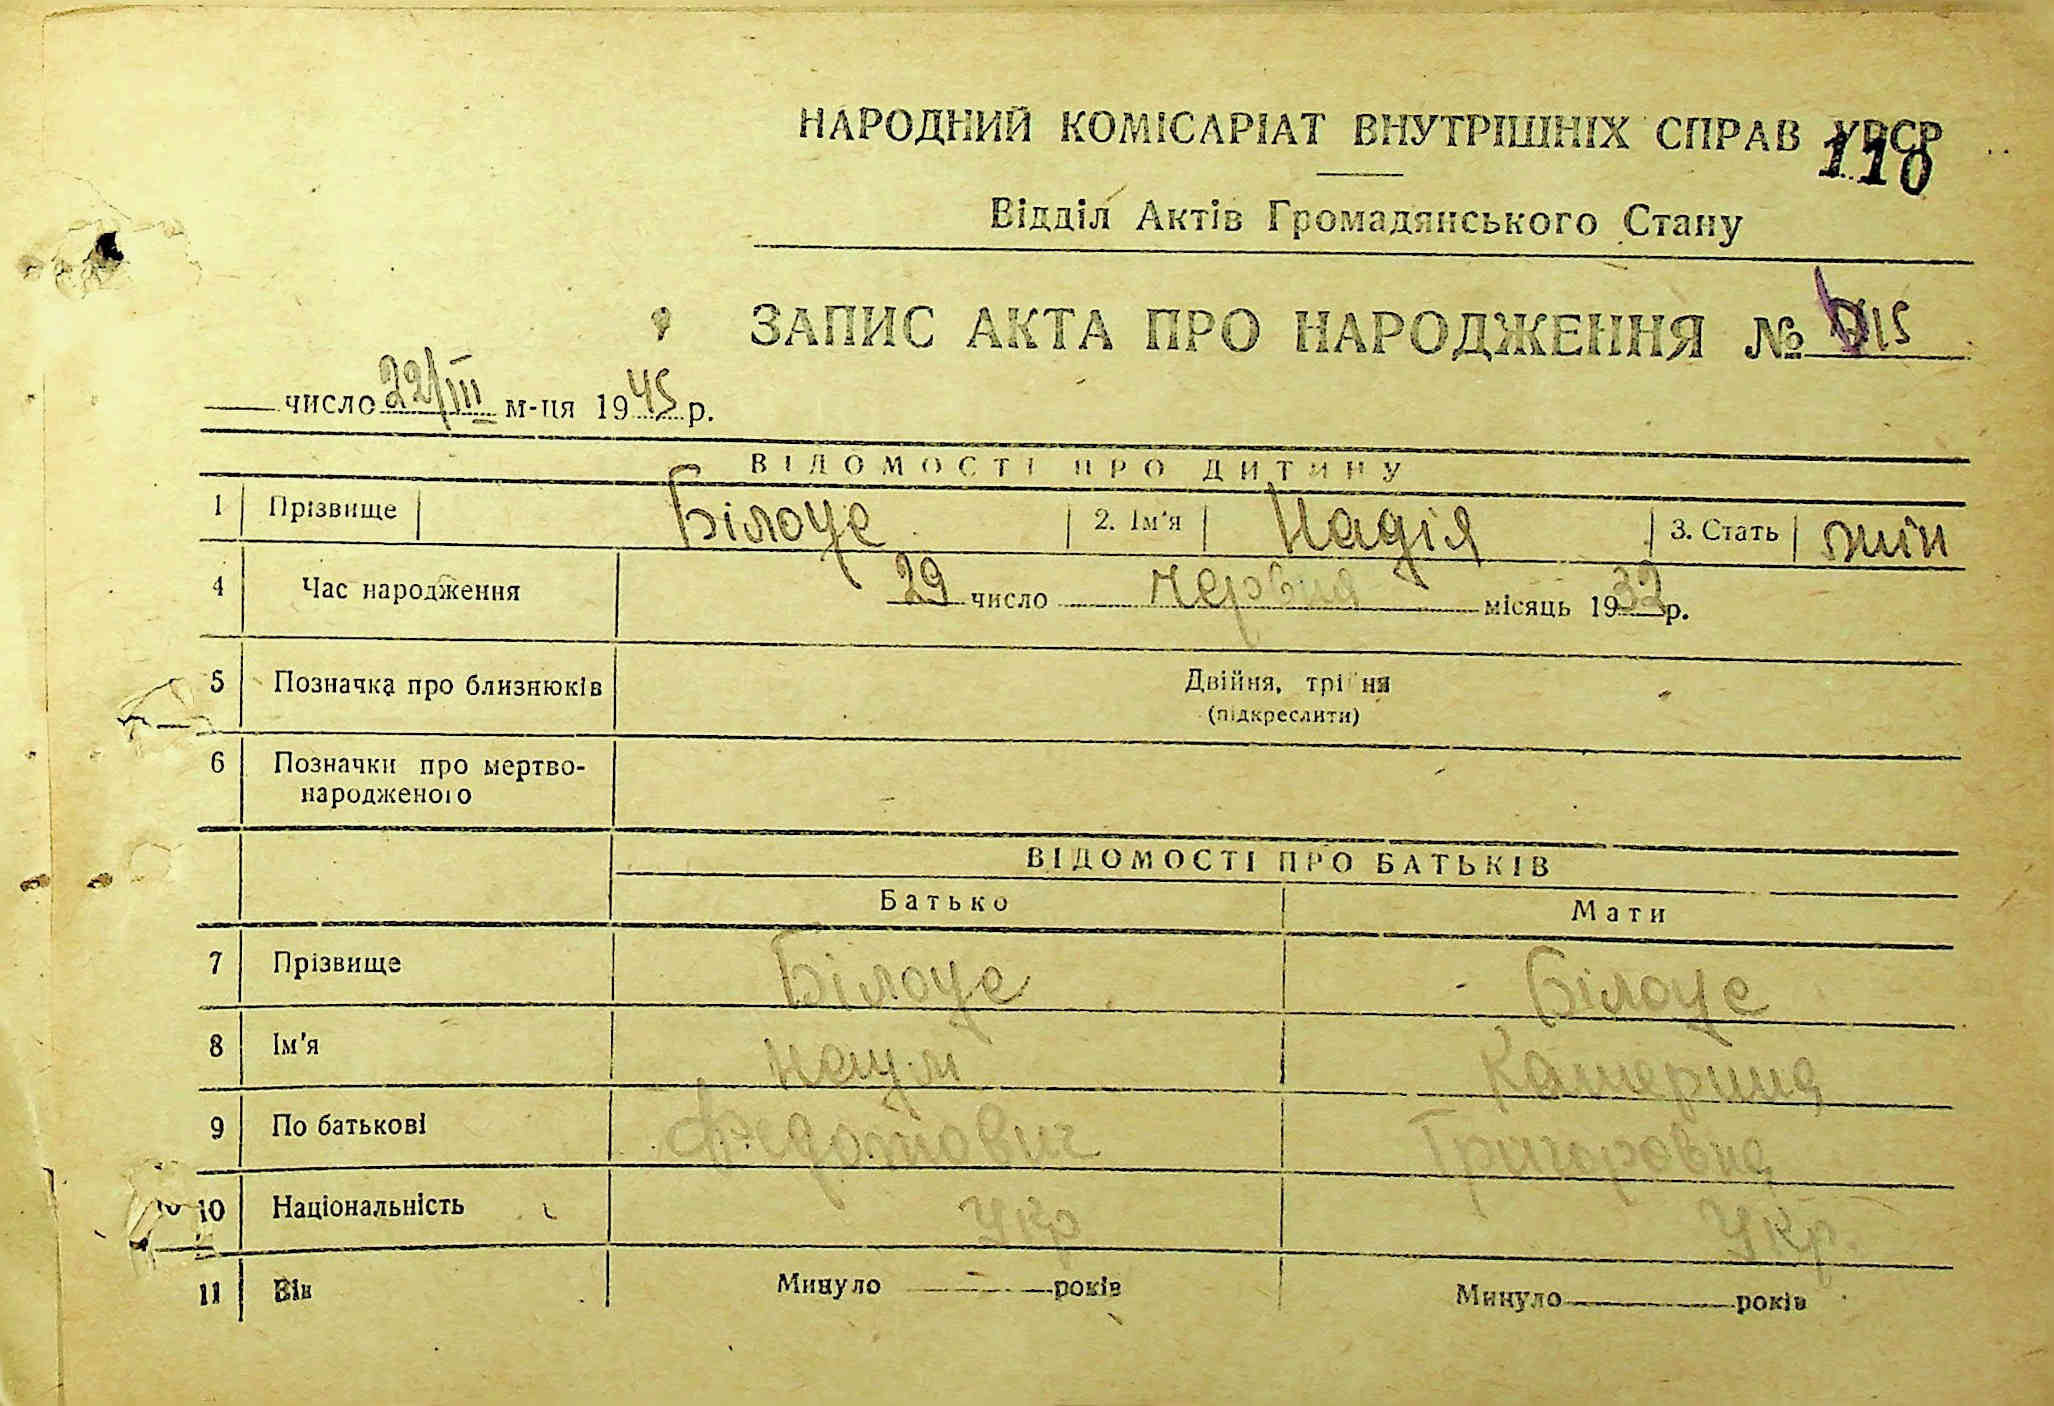 НАРОДНИЙ КОМІСАРІАТ ВНУТРІШНІХ СПРАВ УРСР
110
Відділ Актів Громадянського Стану
ЗАПИС АКТА ПРО НАРОДЖЕННЯ № 15
число 22/III м-ця 1945 р.
ВІДОМОСТІ ПРО ДИТИНУ
1 Прізвище Білоус 2. Ім'я Надія 3. Стать жін
4 Час народження 29 число червня місяць 1932 р.
5 Позначка про близнюків Двійня, трійня
(підкреслити)
6 Позначки про мертво-
народженого
ВІДОМОСТІ ПРО БАТЬКІВ
Батько Мати
7 Прізвище Білоус Білоус
8 Ім'я Наум Катерина
9 По батькові Федотович Григоровна
10 Національність Укр Укр.
11 Вік Минуло років Минуло років